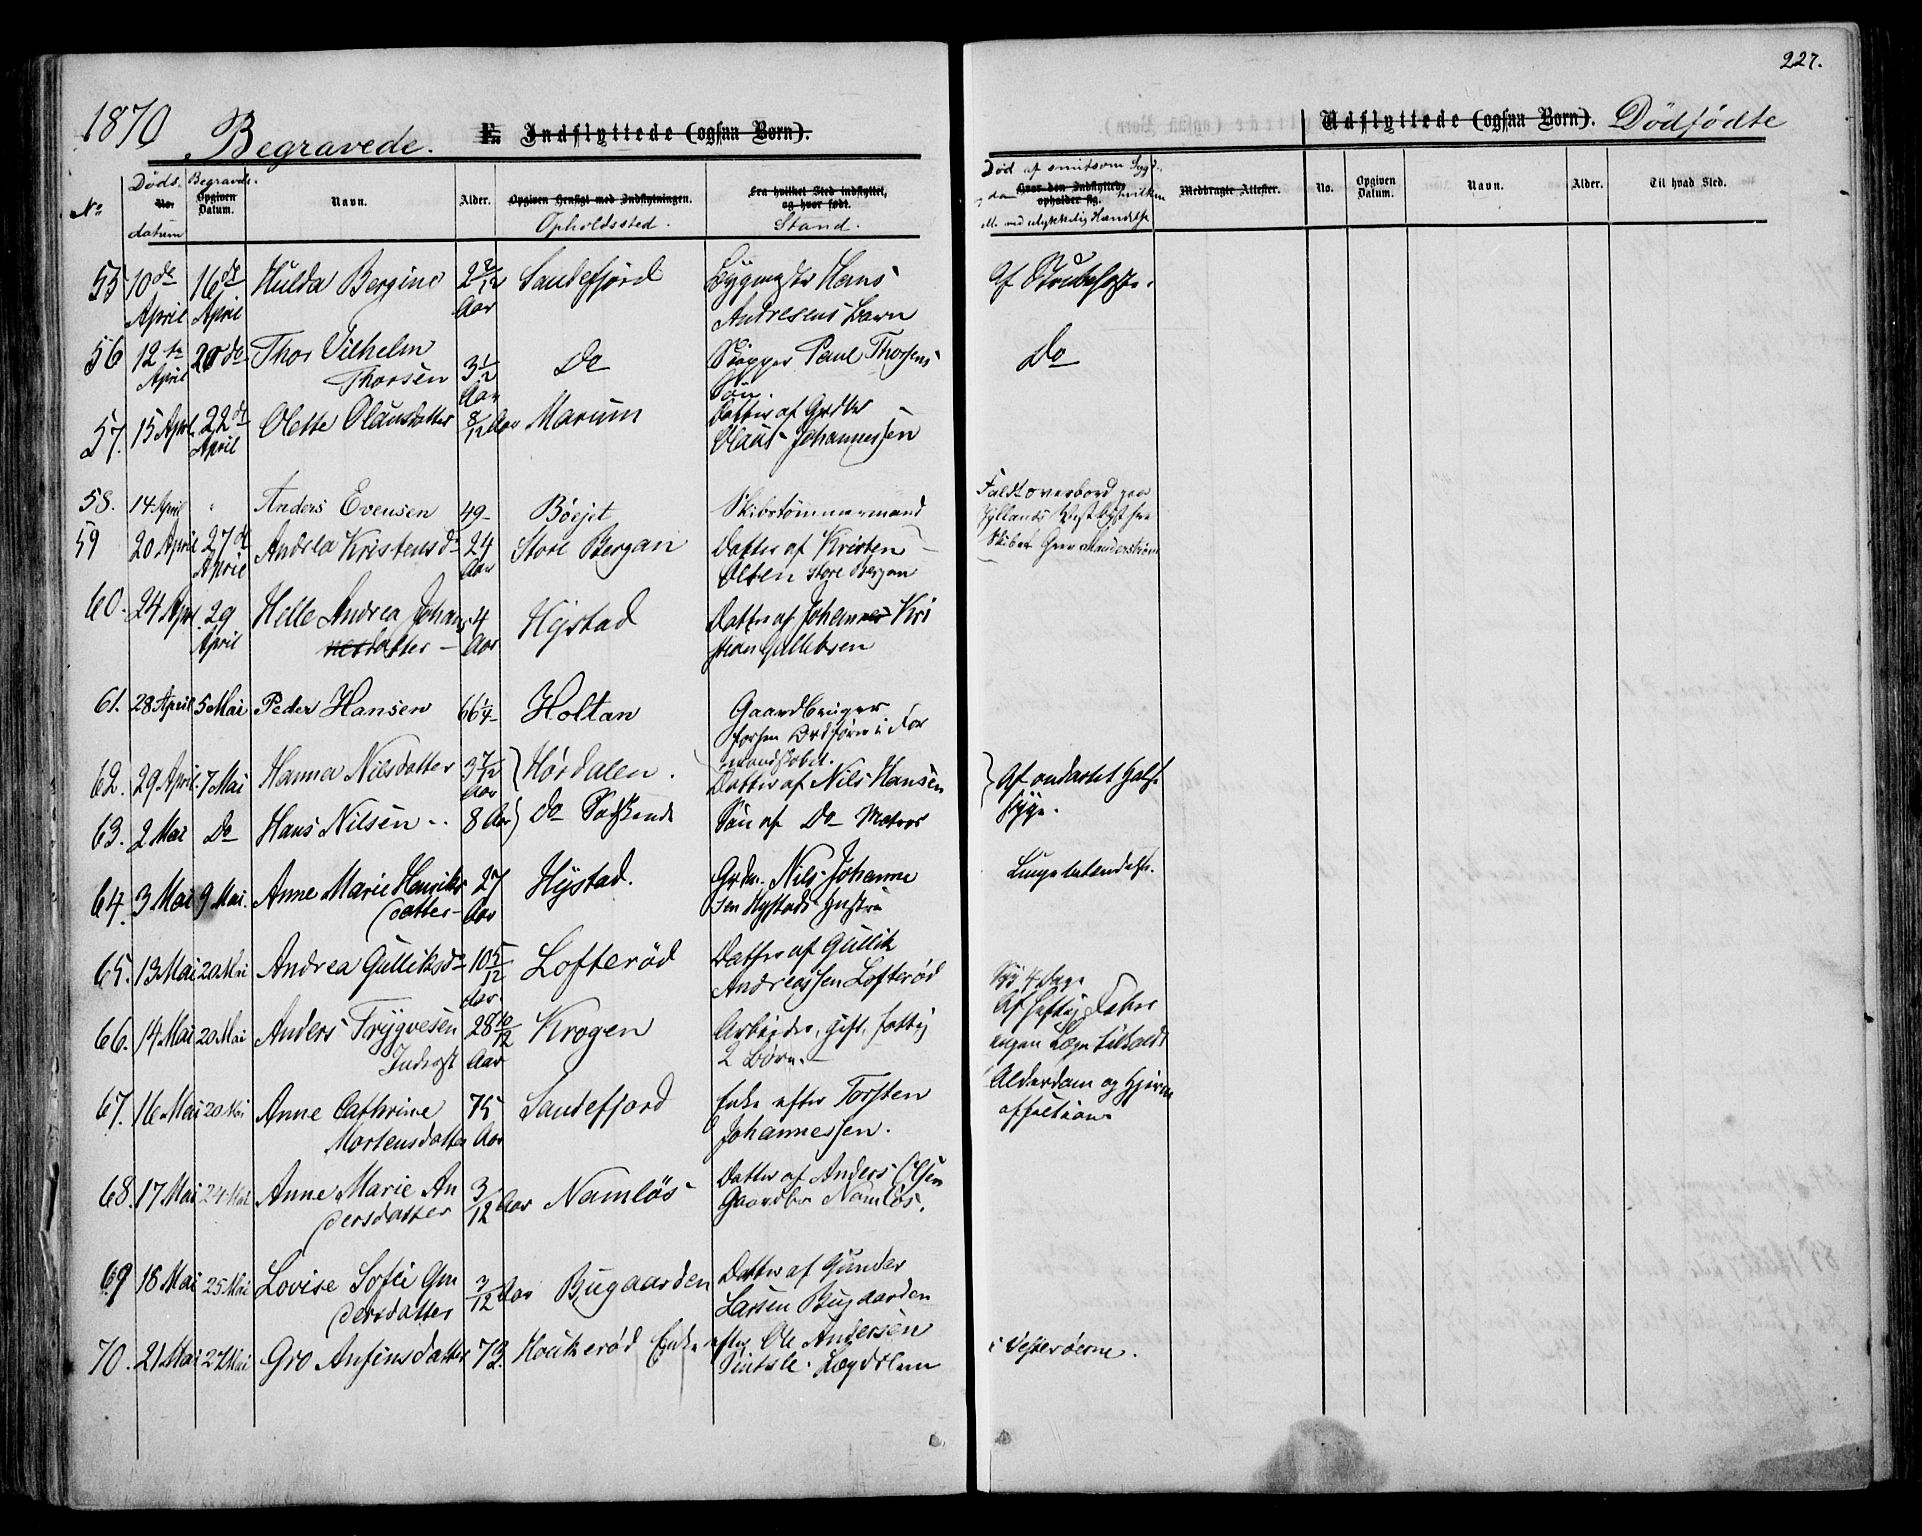 227.
1870 Begravede. E. Indflyttede (ogsaa Børn). Udflyttede (ogsaa Børn). Dødfødte
No Døds- No. datum Begravels- Opgiven Datum. Navn. Alder. Opgiven Hensigt med Indflytningen. Opholdssted. Fra hvilket Sted indflyttet, og hvor født. Stand. Død af smitsom Sygd. Hvor den Indflyttede opholder sig. hvilken ell. ved ulykkelig Hændelse Medbragte Attester. No. Opgiven Datum. Navn. Alder. Til hvad Sted.
55 10de 16de Hulda Bergine 2 2/12 Sandefjord Hans
April April Aar Andresens Barn
56 12te 20 de Thor Vilhelm 3 1/2 Do Paul Thorsens Do
April Thorsen Aar Søn.
57. 15 April 22de Olette Olausdatter 8/12 Aar Marum Datter af
April Olaus Johannessen
58. 14 April " Anders Evensen 49 Bøejet Skibstømmermand Faldt overbord paa
Jyllands Vestkyst fra
59 20 April 27de Andrea Kristensd 24 Store Bergan Datter af Kristen Skibet
April Aar Olsen Store Bergan
60. 24 Apr. 29 Helle Andrea Johan 4 Hystad Datter af Johannes Kri
April nesdatter Aar stian Gulliksen
61. 28 April 5 Mai Peder Hansen 66 1/4 Holtan Gaardbruger
forhen Ordfører i For
mandskabet.
62. 29 April 7 Mai Hanna Nilsdatter 3 7/12 Hørdalen. Datter af Nils Hansen Af ondartet Hals
Aar
63. 2 Mai Do Hans Nilsen 8 Aar Do Søskende Søn af Do Matros syge.
64. 3 Mai 9 Mai. Anne Marie Henriks 27 Hystad. Nils Johanne Lungebetændelse.
datter Aar sen Hystads Hustru
65. 13 Mai 20 Mai Andrea Gulliksd 10 5/12 Lofterød Datter af Gullik
Aar Andreassen Lofterød Syg 4 Dage
66. 14 Mai 20 Mai Anders Trygvesen 28 10/12 Krogen Arbeider, gift, fattig Af heftig Feber
Inderst Aar 2 Børn. ingen Læge tilkaldt
67. 16 Mai 20 Mai Anne Cathrine 75 Sandefjord Enke efter Torsten Alderdom og Hjerne
Mortensdatter Aar Johannessen. affection
68. 17 Mai 24 Mai Anne Marie An 3/12 Aar Namløs Datter af Anders Olsen
dersdatter Gaardbr Namløs.
69 18 Mai 25 Mai Lovise Sofie Gun 3/12 Aar Bugaarden Datter af Gunder
dersdatter Larsen Bugaarden
70. 21 Mai 27 Mai Gro Anfinsdatter 72. Houkerød Enke efter Ole Andersen i Vesterøerne.
Lægdslem